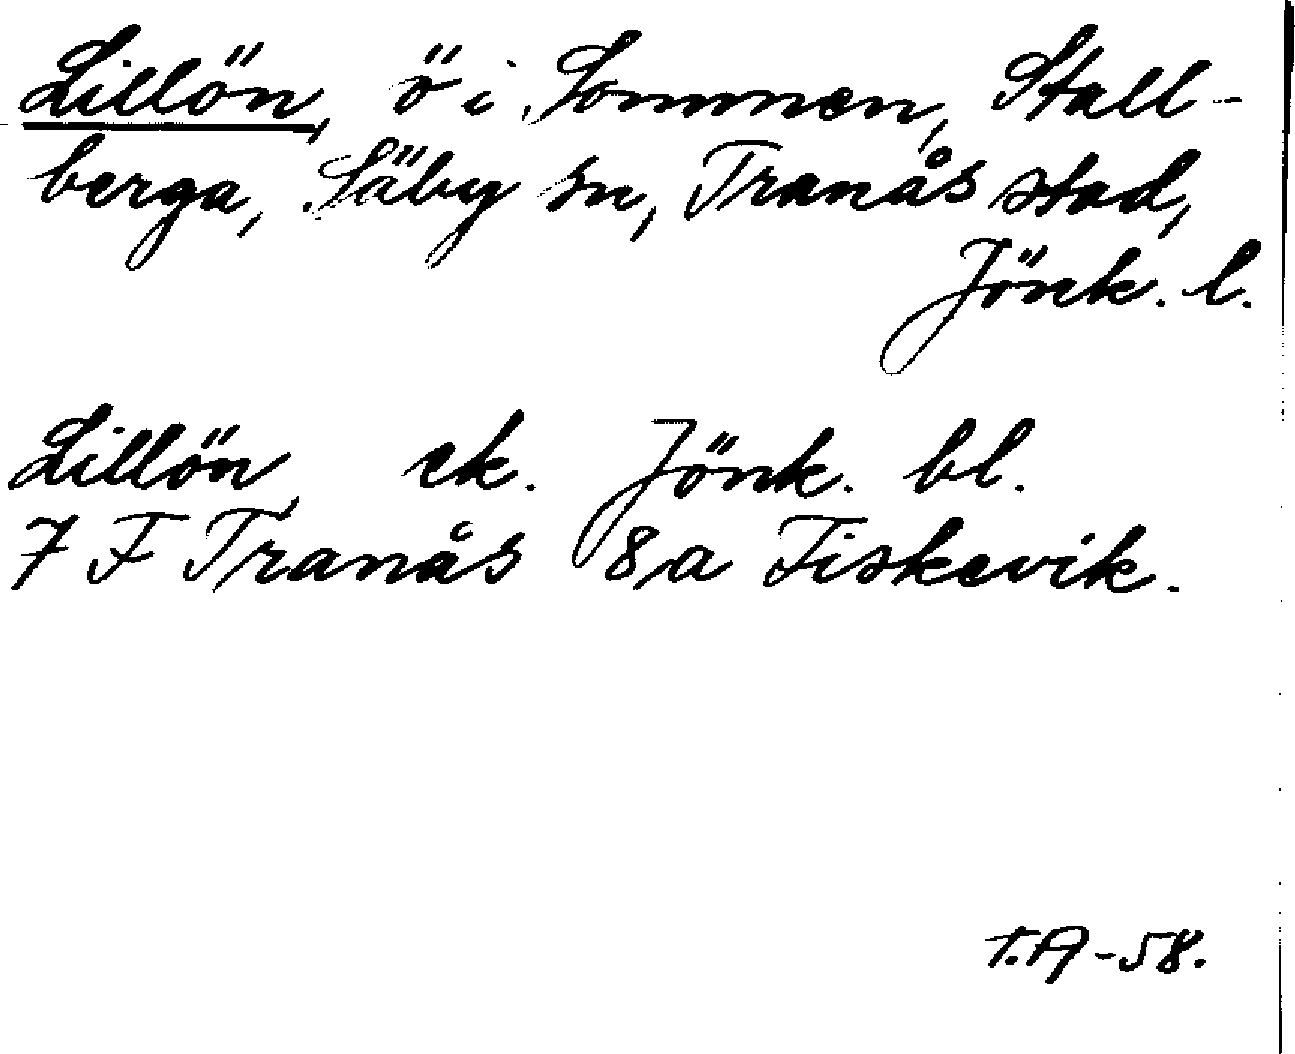 Lillön, ö i Sommen, Stall-
berga, Säby sn, Tranås stad,
Jönk. l.
Lillön, ek. Jönk. bl.
7 F Tranås 8a Fiskevik.
T.A -58.